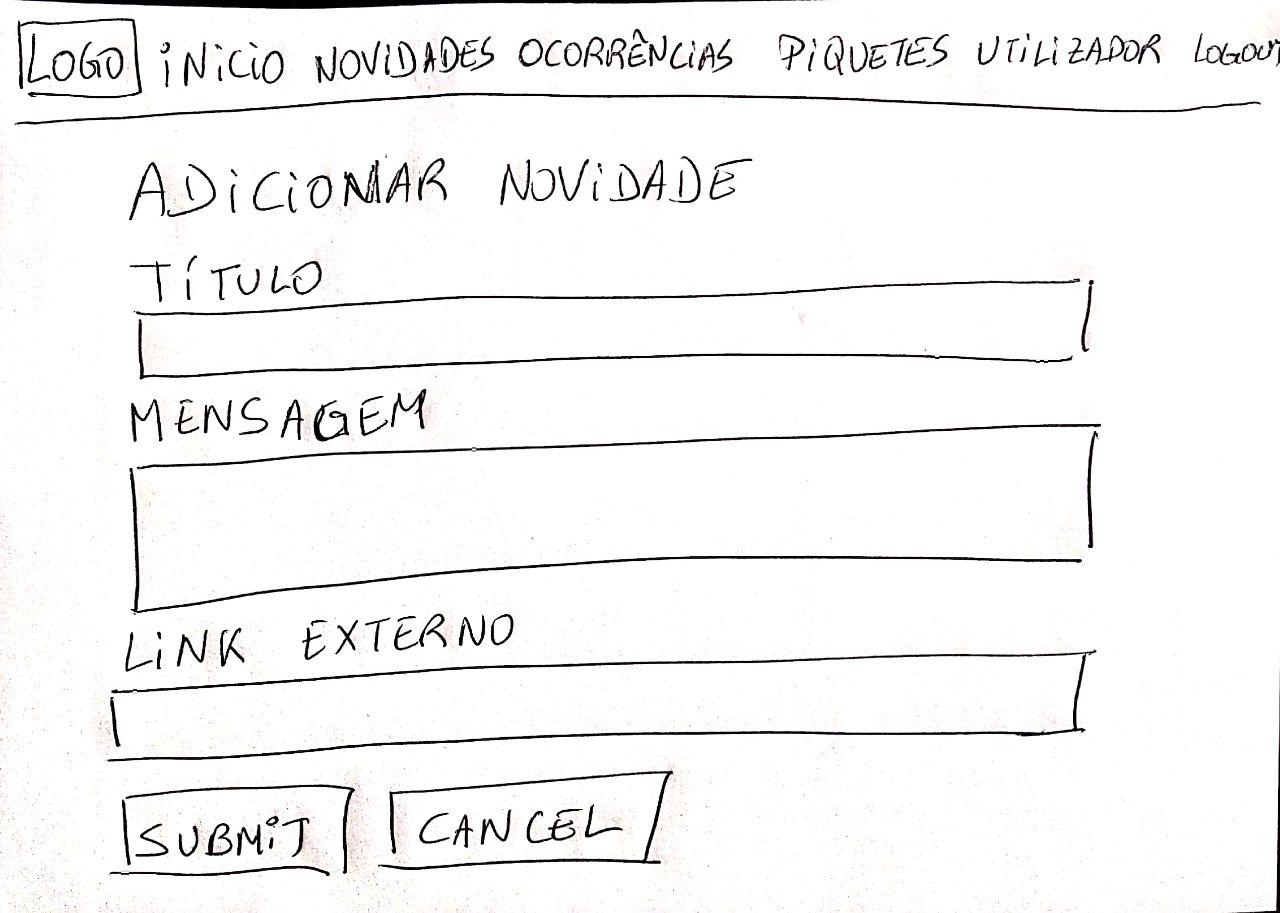 LOGO iNiCiO NOVIDADES OCORRÊNCIAS PIQUETES UTILIZADOR LOGOUT
ADICIONAR NOVIDADE
TÍTULO
MENSAGEM
LINK EXTERNO
SUBMIT CANCEL